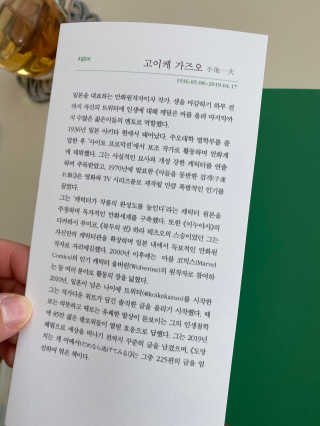 지은이
고이케 가즈오 小池一夫
1936.05.08~2019.04.17
일본을 대표하는 만화원작자이자 작가. 생을 마감하기 하루 전
까지 자신의 트위터에 인생에 대해 깨달은 바를 올려 마지막까
지 수많은 젊은이들의 멘토로 역할했다.
1936년 일본 아키타 현에서 태어났다. 주오대학 법학부를 졸
업한 후 '사이토 프로덕션'에서 보조 작가로 활동하며 만화계
에 데뷔했다. 그는 사실적인 묘사와 개성 강한 캐릭터를 연출
하며 주목받았고, 1970년에 발표한 《아들을 동반한 검객》은
영화와 TV 시리즈물로 제작될 만큼 폭발적인 인기를
끌었다.
그는 '캐릭터가 작품의 완성도를 높인다'라는 캐릭터 원론을
주창하며 독자적인 만화세계를 구축했다. 또한
다카하시 루미코, 《북두의 권》의 하라 테츠오의 스승이었던 그는
자신만의 캐릭터론을 확장하며 일본 내에서 독보적인 만화원
작자로 자리매김했다. 2000년 이후에는 마블 코믹스(Marvel
Comics)의 인기 캐릭터 울버린(Wolverine)의 원작자로 참여하
는 등 여러 분야로 활동의 장을 넓혔다.
2010년, 일흔이 넘은 나이에 트위터(@koikekazuo)를 시작한
그는 작가다운 위트가 담긴 솔직한 글을 올리기 시작했다. 때
로는 따뜻하고 때로는 유쾌한 발상이 돋보이는 그의 인생철학
에 85만 넘은 팔로워들이 열띤 호응으로 답했다. 그는 2019년
폐렴으로 세상을 떠나기 전까지 꾸준히 글을 남겼으며,
그중 225편의 글을 엄
선하여 엮은 책이다.